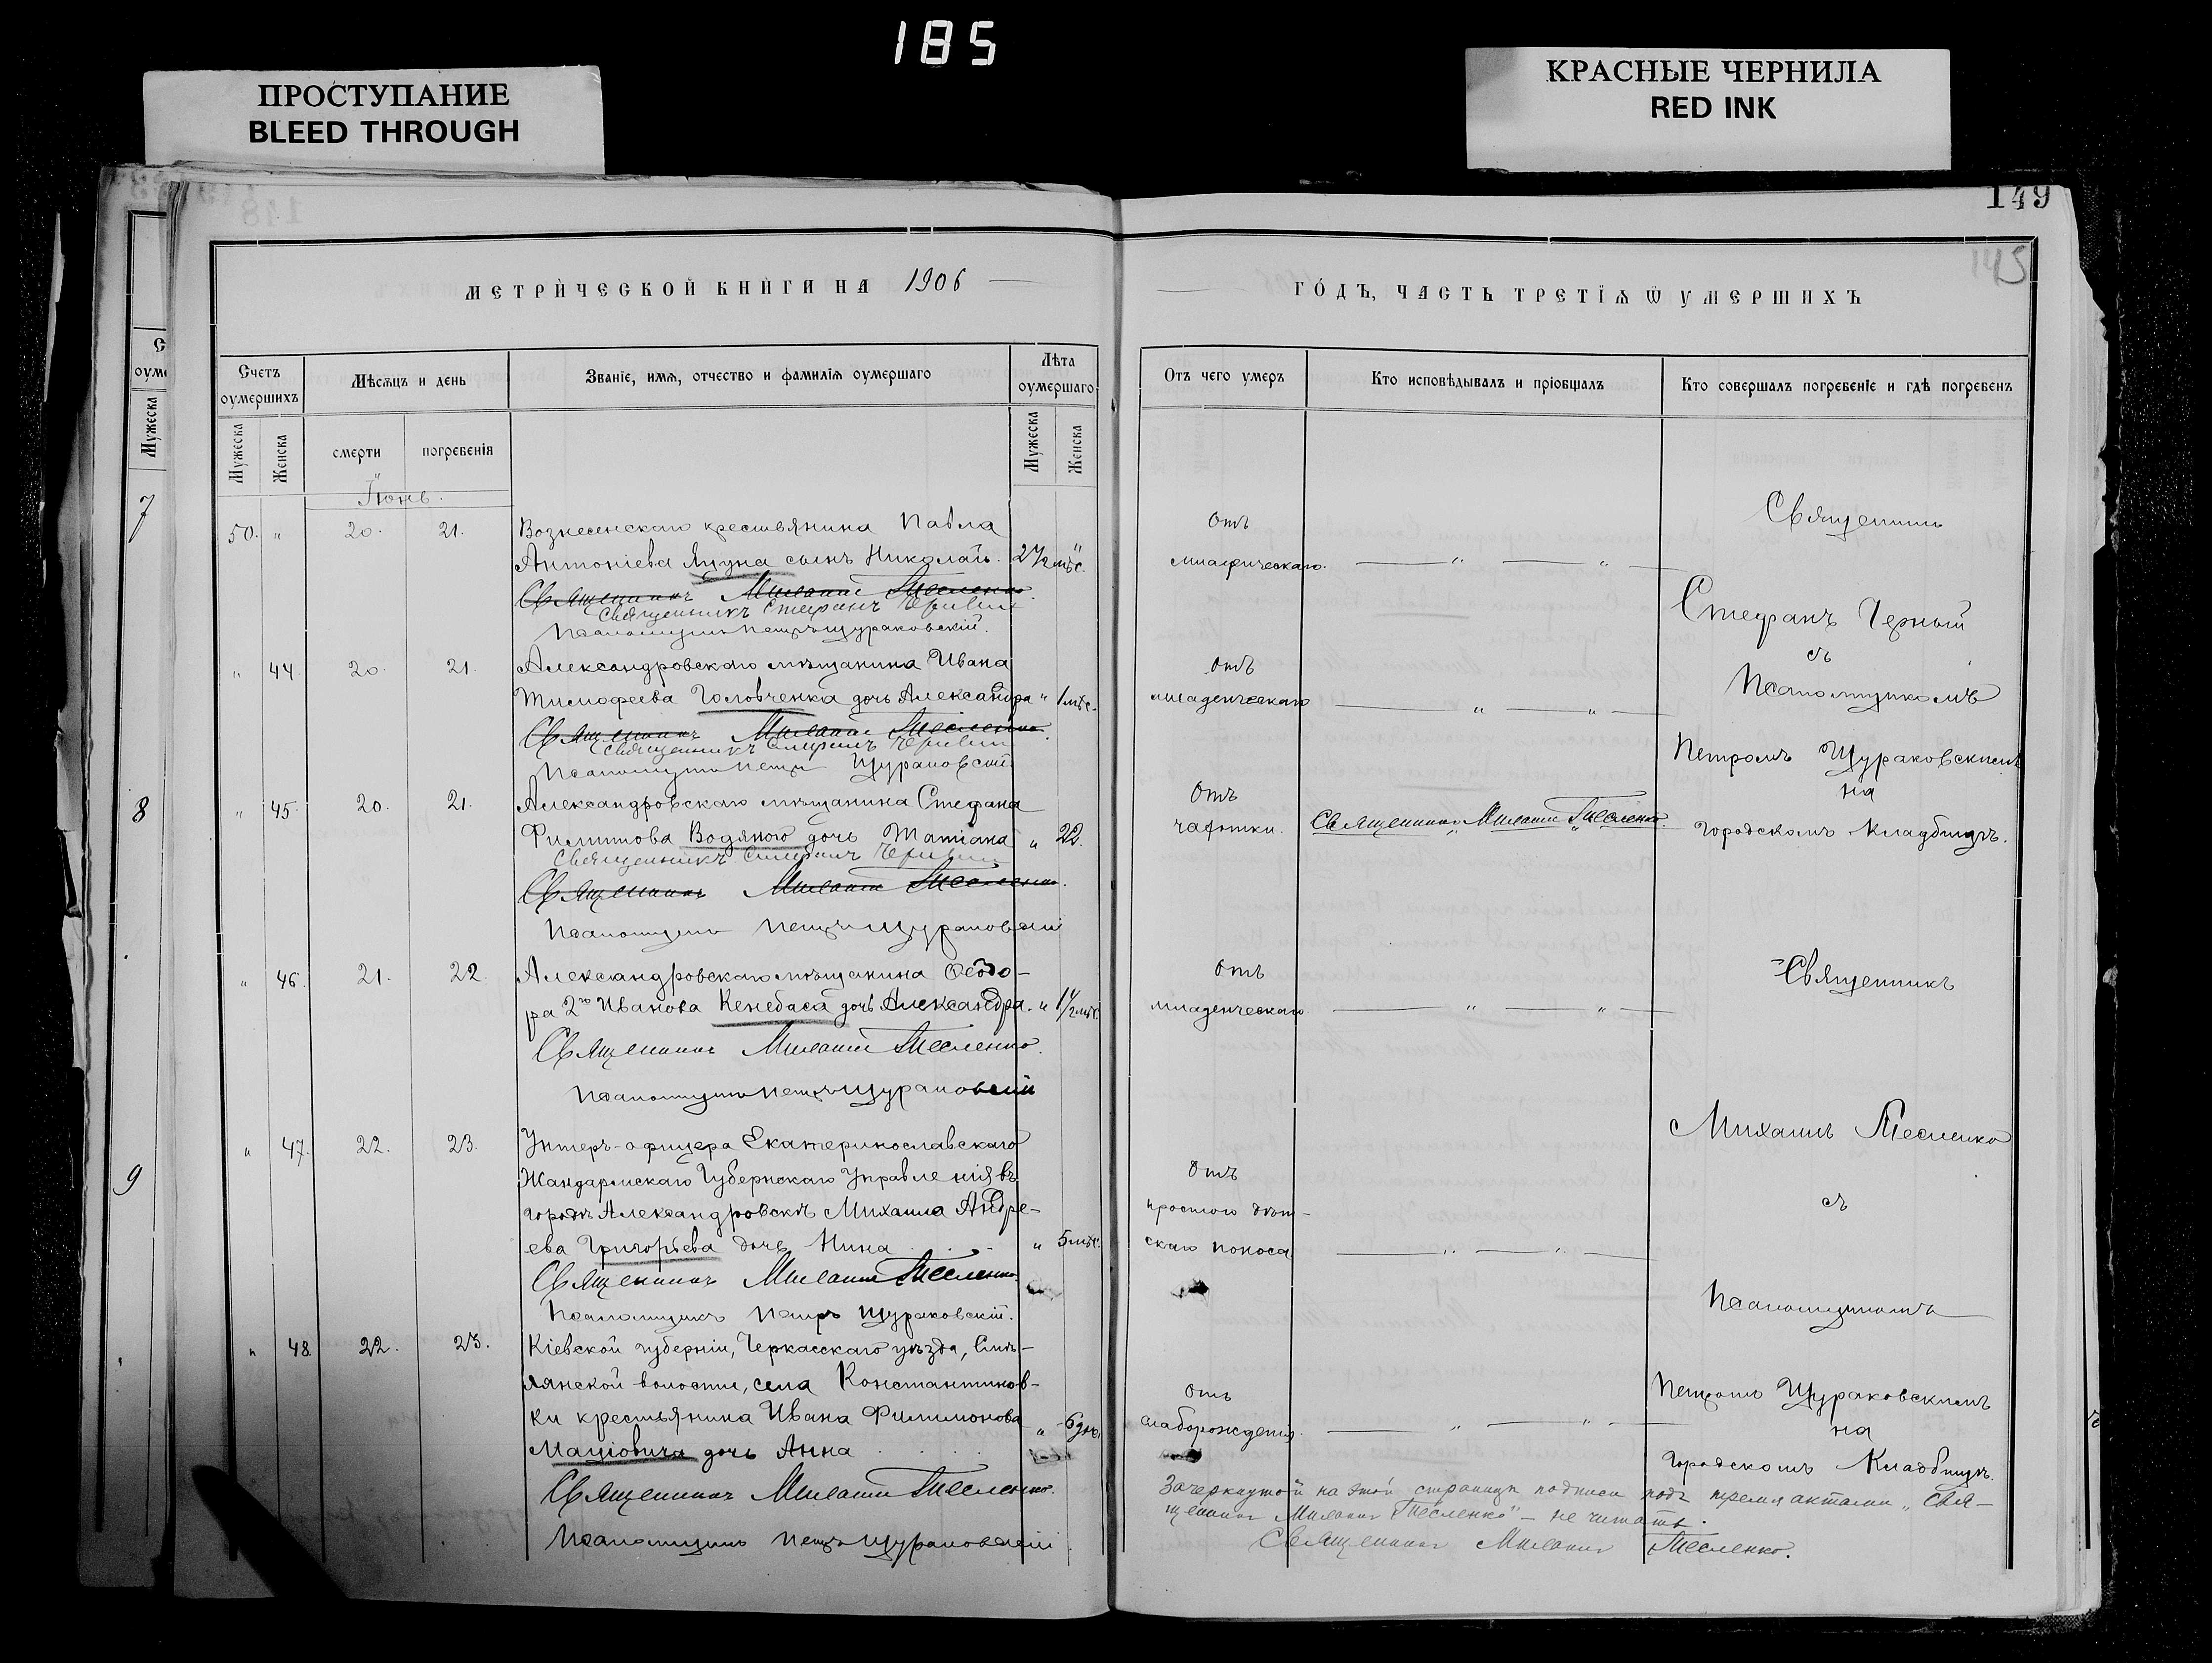 185
ПРОСТУПАНИЕ
BLEED THROUGH
КРАСНЫЕ ЧЕРНИЛА
RED INK
149
145
МЕТРИЧЕСКОЙ КНИГИ НА 1906
ГОДЪ, ЧАСТЬ ТРЕТІЯ Ѿ УМЕРШИХЪ
Счетъ оумершихъ
Мѣсяцъ и день
Званіе, имя, отчество и фамилія оумершаго
Лѣта оумершаго
Отъ чего умеръ
Кто исповѣдывалъ и пріобщалъ
Кто совершалъ погребеніе и гдѣ погребенъ
Мужеска
Женска
смерти
погребенія
Мужеска
Женска
Іюнь.
50. " 20. 21. Вознесенскаго крестьянина Павла
Антоніева Яцуна сынъ Николай. 2 1/2 мѣс.
Отъ
Священникъ Михаилъ Тесленко.
Священникъ Стефанъ
Псаломщикъ Петръ Щураковскій.
" 44 20. 21. Александровскаго мѣщанина Ивана
Тимофеева Головченка дочь Александра " 1 мѣс.
отъ
младенческаго
Священникъ Михаилъ Тесленко.
Священникъ Стефанъ
Псаломщикъ Петръ Щураковскій.
" 45. 20. 21. Александровскаго мѣщанина Стефана
Филиппова Водяного дочь Татіана " 22.
Отъ
чахотки.
Священникъ Михаилъ Тесленко.
Священникъ Стефанъ
Священникъ Михаилъ Тесленко.
Псаломщикъ Петръ Щураковскій
Священникъ
Стефанъ Черный
съ
Псаломщикомъ
Петромъ Щураковскимъ
на
городскомъ кладбищѣ.
" 46. 21. 22. Александровскаго мѣщанина Ѳеодо-
ра 2го Иванова Кенебаса дочь Александра. " 1 1/2 мѣс.
Отъ
младенческаго
Священникъ Михаилъ Тесленко.
Псаломщикъ Петръ Щураковскій
" 47. 22. 23. Унтеръ-офицера Екатеринославскаго
Жандармскаго Губернскаго Управленія въ
городѣ Александровскѣ Михаила Андре-
ева Григорьева дочь Нина " 5 мѣс.
Отъ
простого дѣт-
скаго поноса
Священникъ Михаилъ Тесленко.
Псаломщикъ Петръ Щураковскій.
" 48. 22. 23. Кіевской губерніи, Черкасскаго уѣзда, Смѣ-
лянской волости, села Константинов-
ки крестьянина Ивана Филимонова
Мацювича дочь Анна " 6 дн.
Отъ
слаборожденія.
Священникъ Михаилъ Тесленко.
Псаломщикъ Петръ Щураковскій.
Священникъ
Михаилъ Тесленко
съ
Псаломщикомъ
Петромъ Щураковскимъ
на
Городскомъ Кладбищѣ.
Зачеркнутой на этой страницѣ подписи подъ тремя актами „Свя-
щенникъ Михаилъ Тесленко" - не читать.
Священникъ Михаилъ Тесленко.
7
8
9